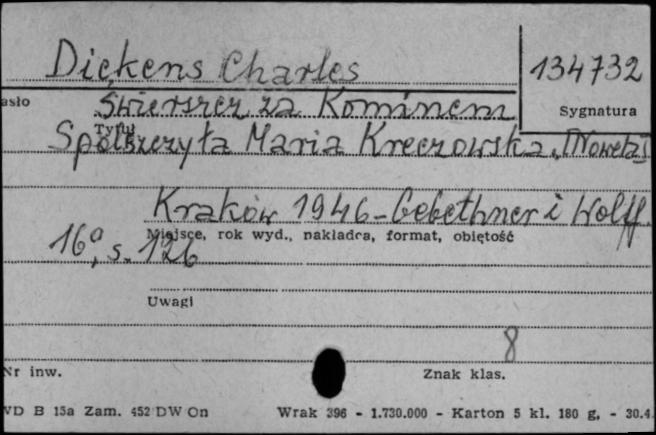 Dickens Charles
134732
asło
Świerszcz za Kominem
Sygnatura
Tytuł
Spolszczyła Maria Kreczowska. (Nowela)
Kraków 1946 - Gebethner i Wolff.
Miejsce, rok wyd., nakładca, format, objętość
16°, s. 126
Uwagi
8
Nr inw.
Znak klas.
WD B 15a Zam. 452 DW On
Wrak 396 - 1.730.000 - Karton 5 kl. 180 g. - 30.4.